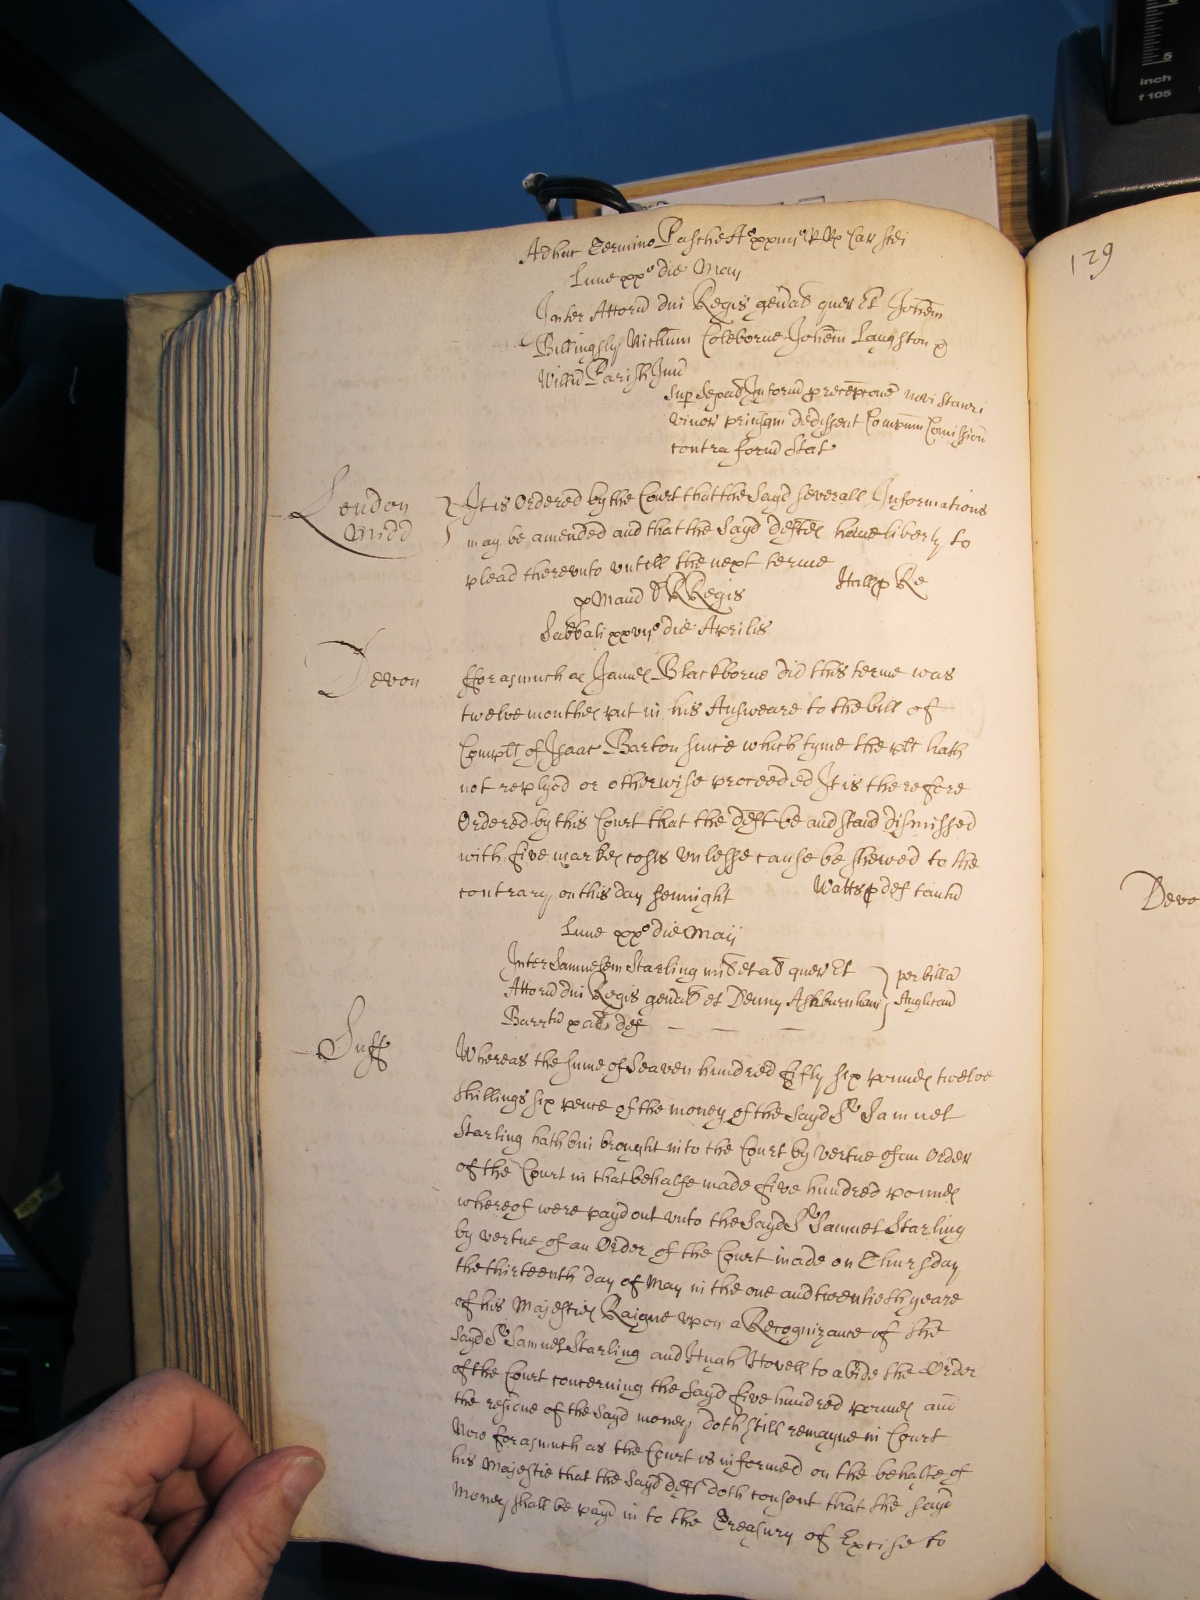 Adhuc Termino Pasche A° xxiiij° R Rx Car Scdi
Lune xx° die May
Inter Attorn dni Regis genal quer Et Johem
Billingsly Nichum Coleborne Johem Langston &
Willm Parish Jun
Sup sepal Inform p recepcone novi
vinor priusqm dedissent Compum Comission
contra form Stat
London
Midd
It is Ordered by the Court that the Sayd severall Informations
may be amended and that the Sayd deftes have liberty to
plead thereunto untill the next terme
Hall p Re
p Mand R Regis
Sabbati xxvij° die Aprilis
Devon
fforasmuch as James Blackborne did this terme was
twelve monthes put in his Answeare to the bill of
Complt of Isaac Barton since which tyme the plt hath
not replyed or otherwise proceeded It is therefore
Ordered by this Court that the deft be and stand dismissed
with five markes costs unlesse cause be shewed to the
contrary on this day sennight
Watts p def tantu
Lune xx° die Maij
Inter Samuelem Starling mil et al quer Et
Attorn dni Regis genal et Denny Ashburnham
Barrtu x al def
per billa
Anglican
Suff
Whereas the sume of Seaven hundred fifty six poundes twelve
shillings six pence of the money of the Sayd Sr Samuel
Starling hath bin brought into the Court by vertue of an Order
of the Court in that behalfe made five hundred poundes
whereof were payd out unto the Sayd Sr Samuel Starling
by vertue of an Order of the Court made on Thursday
the thirteenth day of May in the one and twentieth yeare
of his Majesties Raigne upon a Recognizance of the
Sayd Sr Samuel Starling and Hugh Hovell to abide the Order
of the Court concerning the Sayd five hundred poundes and
the residue of the Sayd money doth still remayne in Court
Now forasmuch as the Court is informed on the behalfe of
his Majestie that the Sayd deft doth consent that the sayd
Money shall be payd in to the Treasury of Excise to
129
Devo
5
inch
f 105